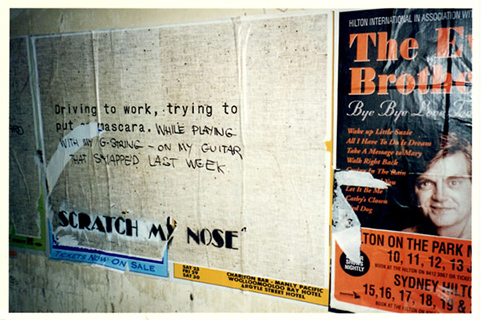 Driving to work, trying to
put on mascara. WHILE PLAYING
WITH MY G-STRING - ON MY GUITAR
THAT SNAPPED LAST WEEK
SCRATCH MY NOSE
TICKETS NOW ON SALE
SAT 23
FRI 29
SAT 30
CHARLTON BAR - MANLY PACIFIC
WOOLLOOMOOLOO BAY HOTEL
ARGYLE STREET HOTEL
HILTON INTERNATIONAL IN ASSOCIATION WIT
The E
Brothe
Bye Bye Love
Wake up Little Susie
All I Have To Do is Dream
Take A Message to Mary
Walk Right Back
In The Rain
Let It Be Me
Cathy's Clown
Dog
TON ON THE PARK
10, 11, 12, 13
SYDNEY HILT
15, 16, 17, 18, 19
SHOWS
NIGHTLY